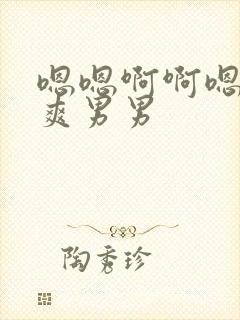 嗯嗯啊啊嗯
爽男男
陶秀珍